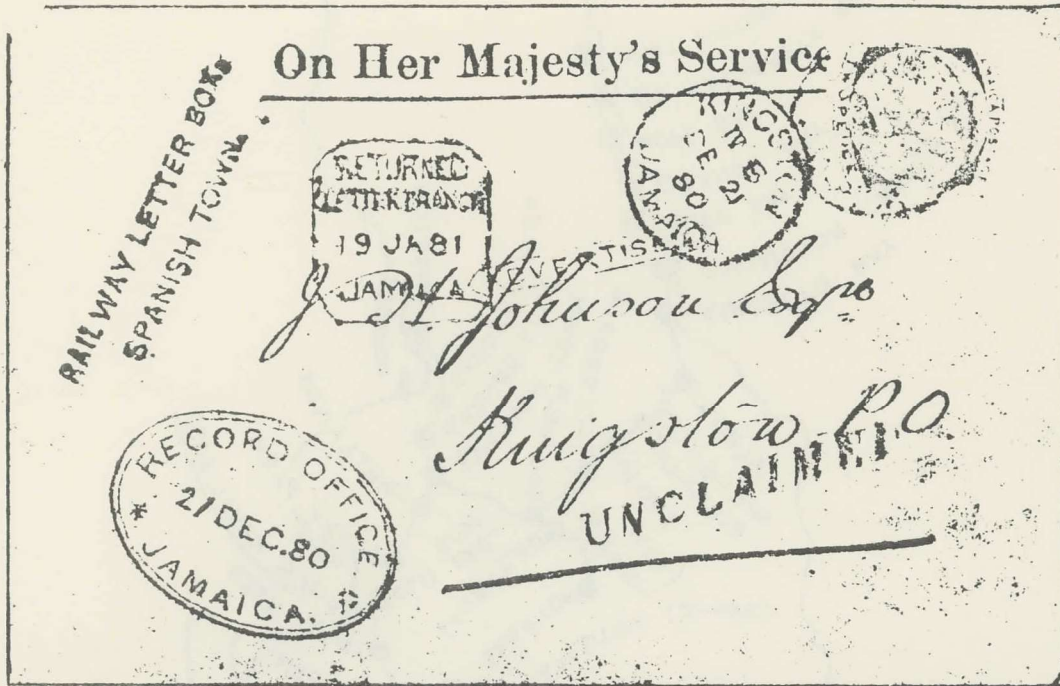 On Her Majesty's Service
RAILWAY LETTER BOX.
SPANISH TOWN.
RETURNED
LETTER BRANCH
19 JA 81
JAMAICA
KINGSTON
DE 21
80
JAMAICA
J H Johnson Esqre
Kingston P.O.
UNCLAIMED
RECORD OFFICE
21 DEC. 80
* JAMAICA. *